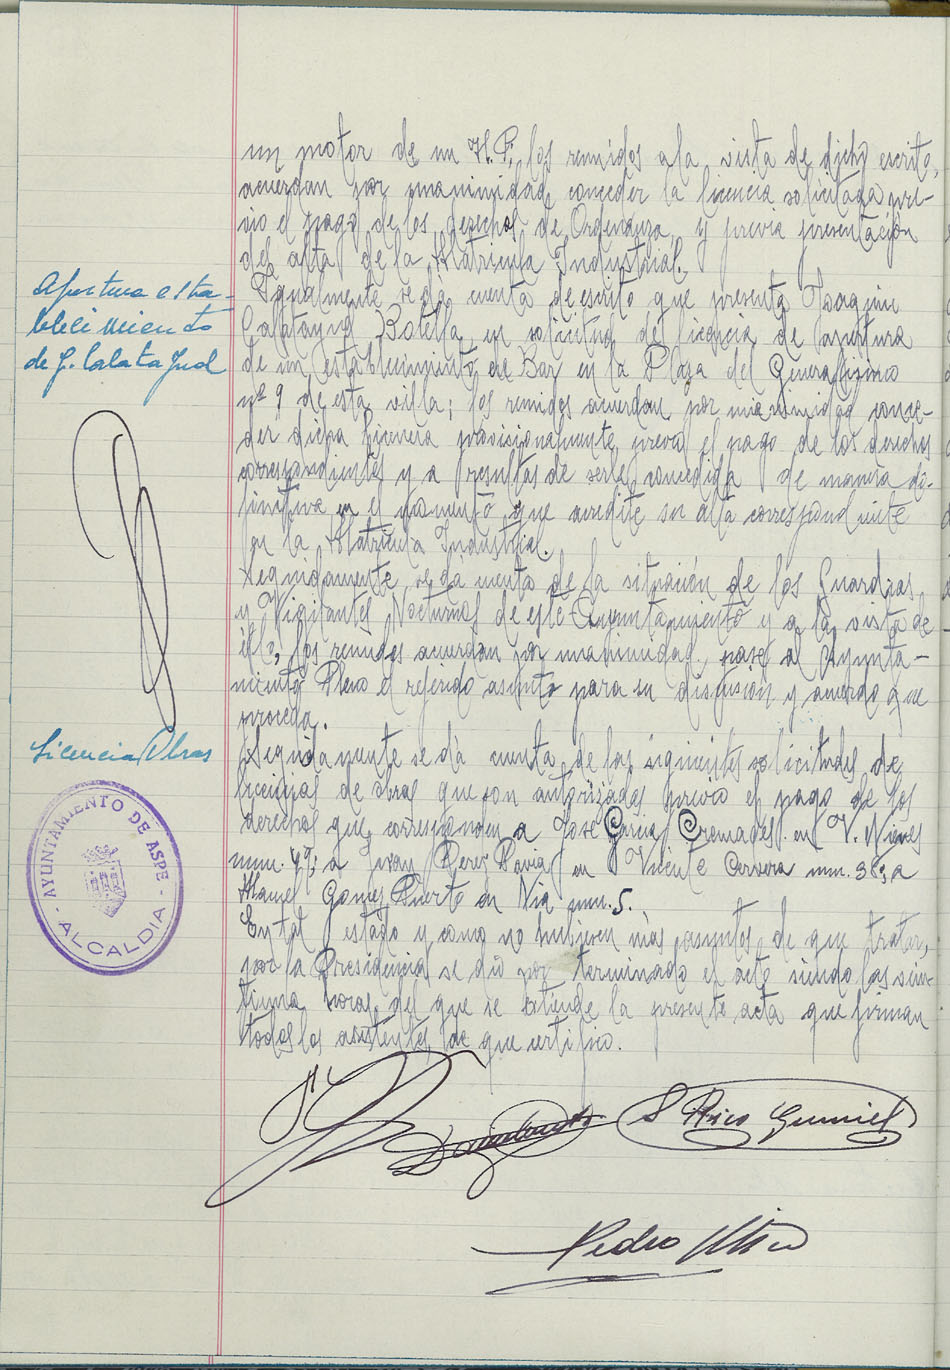 un motor de un H.P; los reunidos a la vista de dicho escrito,
acuerdan por unanimidad conceder la licencia solicitada pre-
vio el pago de los derechos de Ordenanza y previa presentación
del alta de la Matricula Industrial.
Apertura esta-
blecimiento
de J. Calatayud
Igualmente se dá cuenta de escrito que presenta Joaquin
Calatayud Botella, en solicitud de licencia de apertura
de un establecimiento de Bar en la Plaza del Generalisimo
nº 9 de esta villa; los reunidos acuerdan por unanimidad conce-
der dicha licencia provisionalmente previo el pago de los derechos
correspondientes y a resultas de serle concedida de manera de-
finitiva en el momento que acredite su alta correspondiente
en la Matricula Industrial.
Seguidamente se dá cuenta de la situación de los Guardias
y Vigilantes Nocturnos de este Ayuntamiento y a la vista de
ello, los reunidos acuerdan por unanimidad, pase al Ayunta-
miento Pleno el referido asunto para su discusión y acuerdo que
proceda.
Licencia Obras
Seguidamente se dá cuenta de las siguientes solicitudes de
licencias de obras que son autorizadas previo el pago de los
derechos que corresponden a José Garcia Cremades en V. Nieves
num. 49; a Juan Perez Pavia en Vicente Cervera num. 3 a
Manuel Gomez Puerto en Via num. 5.
En tal estado y como no hubiesen más asuntos de que tratar,
por la Presidencia se dió por terminado el acto siendo las vein-
tiuna horas, del que se extiende la presente acta que firman
todos los asistentes, de que certifico.
AYUNTAMIENTO DE ASPE
ALCALDIA
S Rico
Pedro